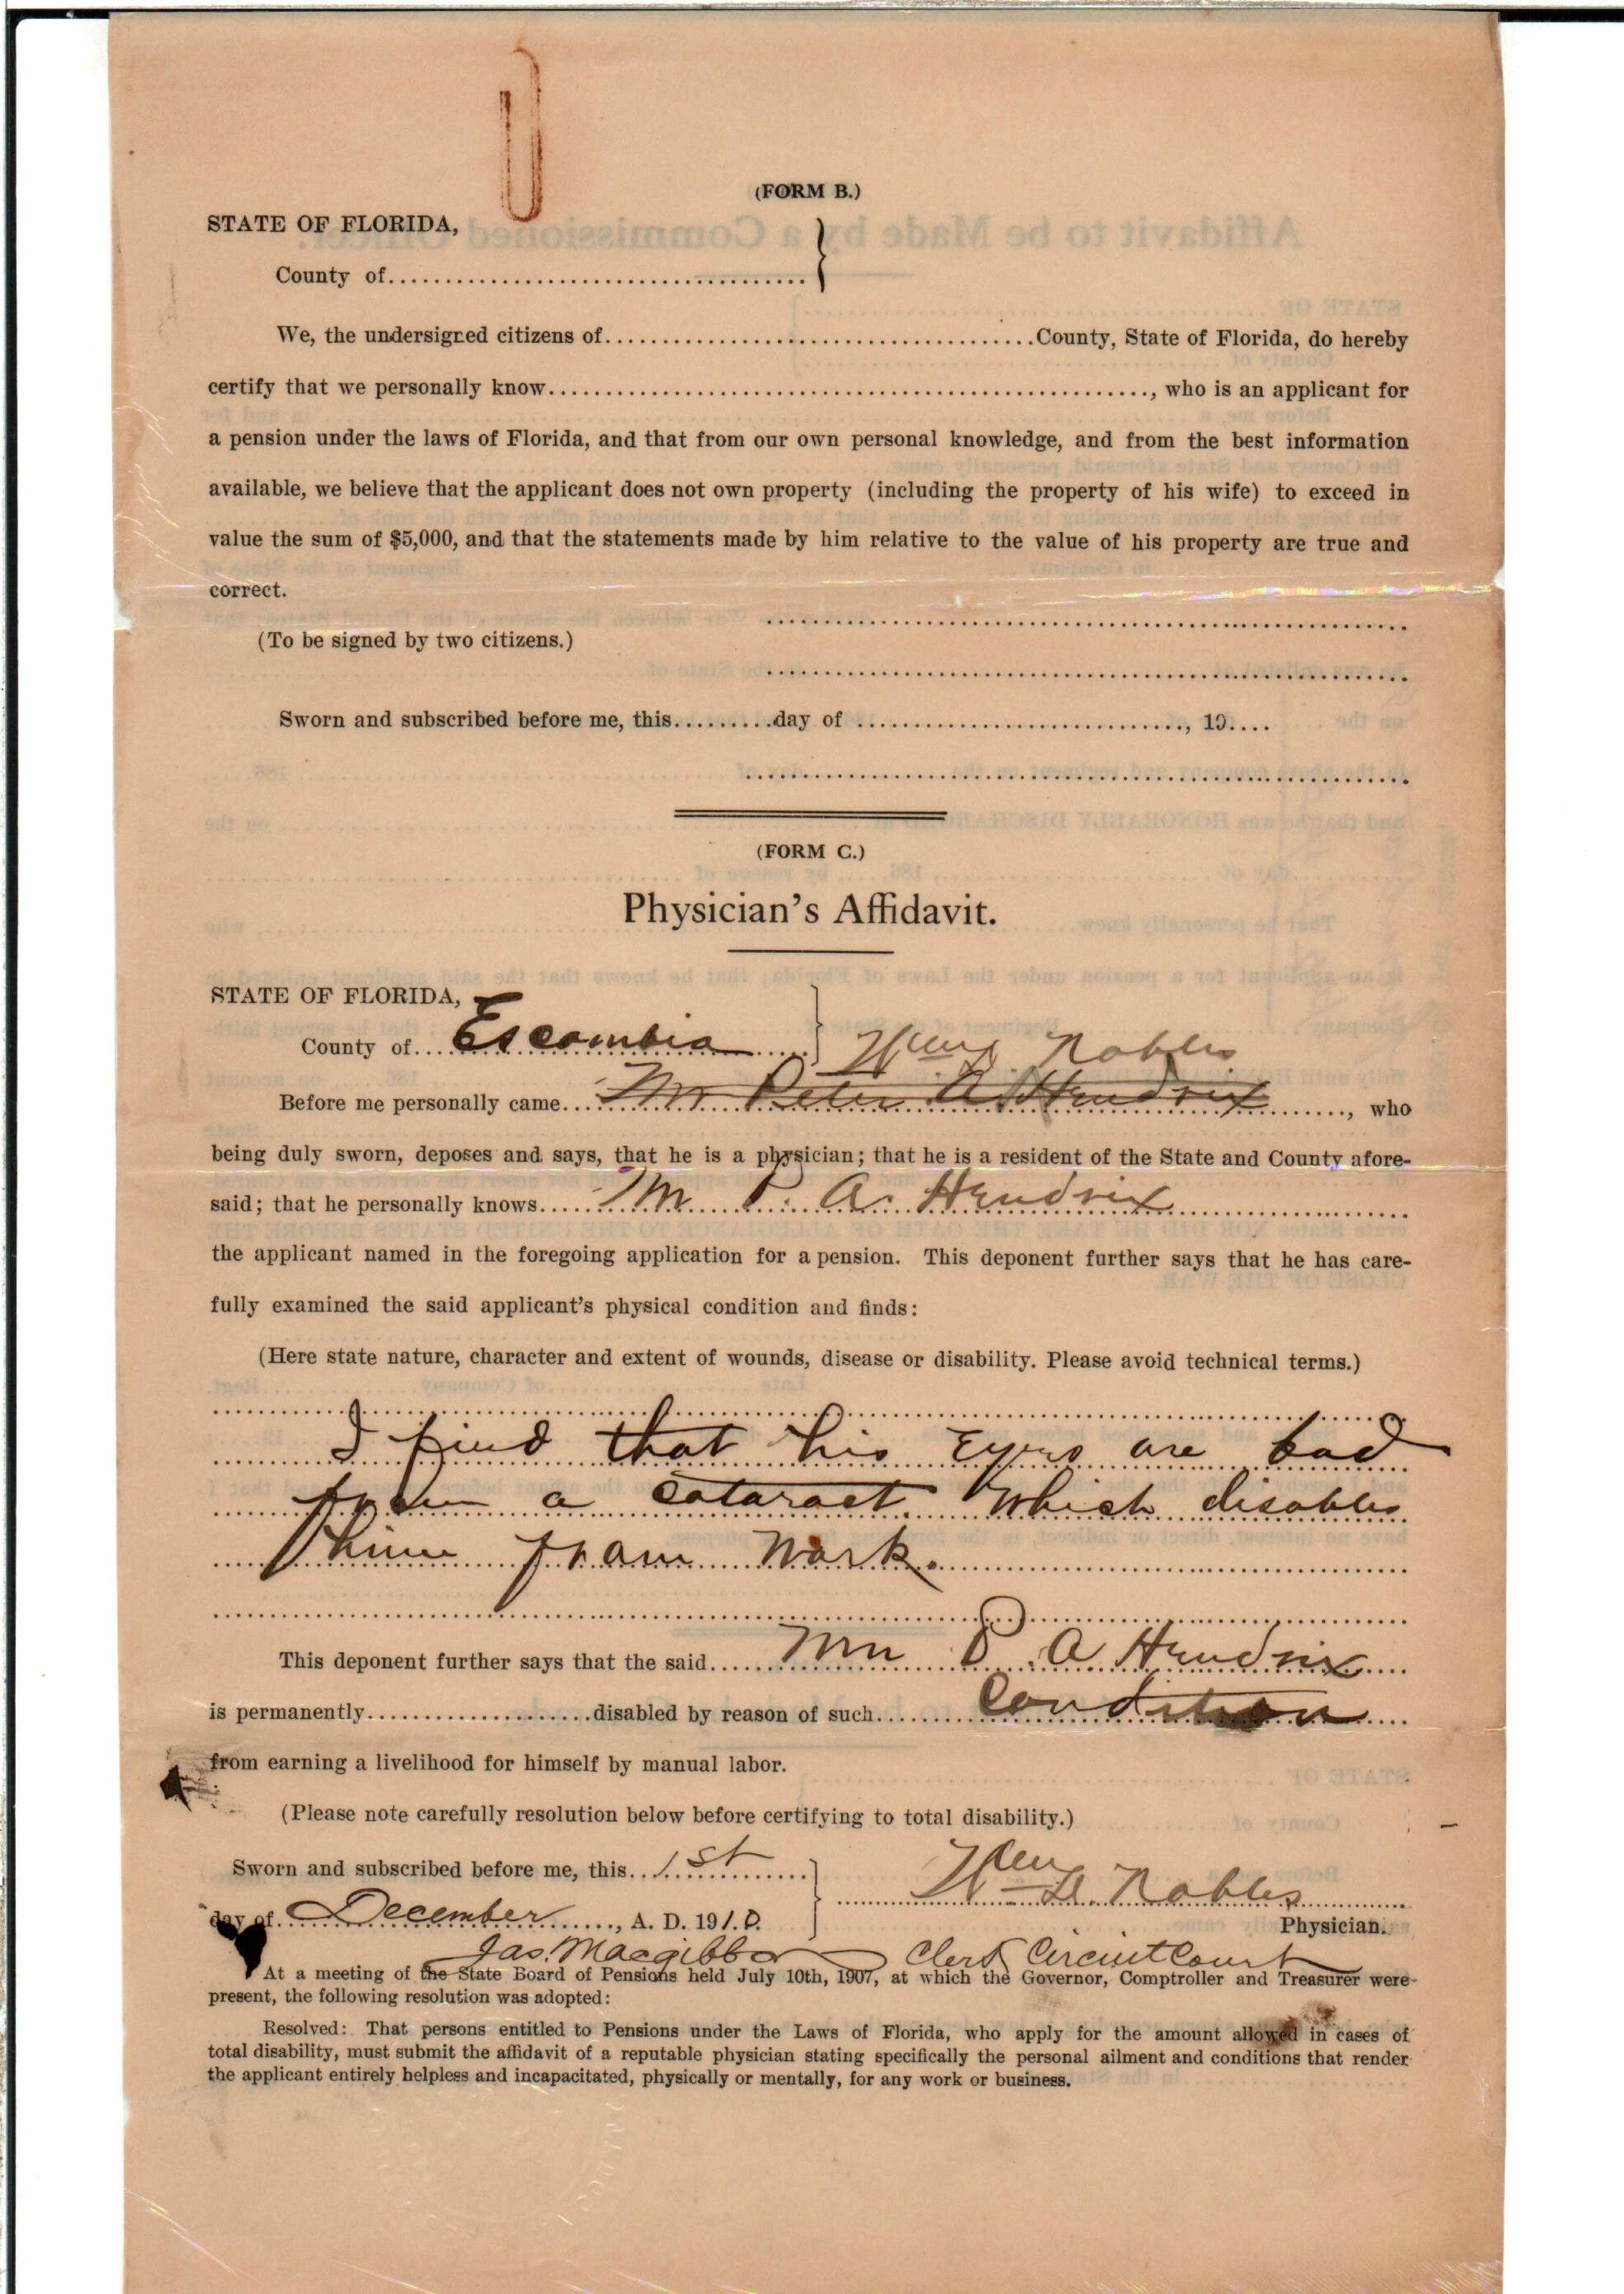 (FORM B.)
STATE OF FLORIDA,
County of.....................................
We, the undersigned citizens of......................................County, State of Florida, do hereby
certify that we personally know......................................................, who is an applicant for
a pension under the laws of Florida, and that from our own personal knowledge, and from the best information
available, we believe that the applicant does not own property (including the property of his wife) to exceed in
value the sum of $5,000, and that the statements made by him relative to the value of his property are true and
correct.
(To be signed by two citizens.)
Sworn and subscribed before me, this.........day of .............................., 19....
(FORM C.)
Physician's Affidavit.
STATE OF FLORIDA,
County of... Escambia
Nobles
Before me personally came... Mr Peter A Hendrix ........, who
being duly sworn, deposes and says, that he is a physician; that he is a resident of the State and County afore-
said; that he personally knows..... Mr P. A. Hendrix
the applicant named in the foregoing application for a pension. This deponent further says that he has care-
fully examined the said applicant's physical condition and finds:
(Here state nature, character and extent of wounds, disease or disability. Please avoid technical terms.)
I find that his Eyes are bad
from a cataract which disables
him from work.
This deponent further says that the said..... Mr P. A Hendrix
is permanently....................disabled by reason of such....... Condition
from earning a livelihood for himself by manual labor.
(Please note carefully resolution below before certifying to total disability.)
Sworn and subscribed before me, this.. 1st
Nobles
day of. December ......, A. D. 191.0.
Physician.
Jas. Macgibbon Clerk Circuit Court
At a meeting of the State Board of Pensions held July 10th, 1907, at which the Governor, Comptroller and Treasurer were
present, the following resolution was adopted:
Resolved: That persons entitled to Pensions under the Laws of Florida, who apply for the amount allowed in cases of
total disability, must submit the affidavit of a reputable physician stating specifically the personal ailment and conditions that render
the applicant entirely helpless and incapacitated, physically or mentally, for any work or business.